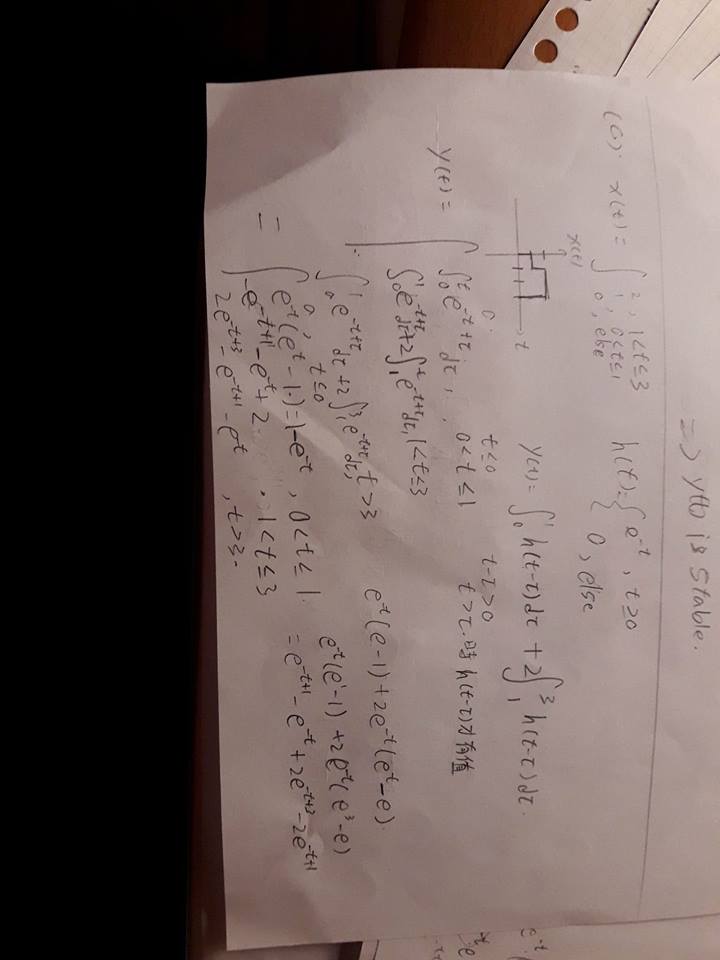 => y(t) is stable.
(c). x(t) = { 2, 1<t≤3
1, 0<t≤1
0, else
h(t) = { e^-t, t≥0
0, else
x(t)
t
y(t) = ∫₀¹ h(t-τ)dτ + 2∫₁³ h(t-τ)dτ.
t-τ>0
t>τ.時 h(t-τ)才有值
y(t) = { 0. t≤0
∫₀ᵗ e^-t+τ dτ, 0<t≤1
∫₀¹ e^-t+τ dτ + 2∫₁ᵗ e^-t+τ dτ, 1<t≤3
∫₀¹ e^-t+τ dτ + 2∫₁³ e^-t+τ dτ, t>3
e^-t(e-1)+2e^-t(e^t-e).
e^-t(e^1-1)+2e^-t(e^3-e)
= e^-t+1 - e^-t + 2e^-t+3 - 2e^-t+1
= { 0, t≤0
e^-t(e^t-1.) = 1-e^-t, 0<t≤1.
-e^-t+1 - e^-t + 2. , 1<t≤3
2e^-t+3 - e^-t+1 - e^-t , t>3.